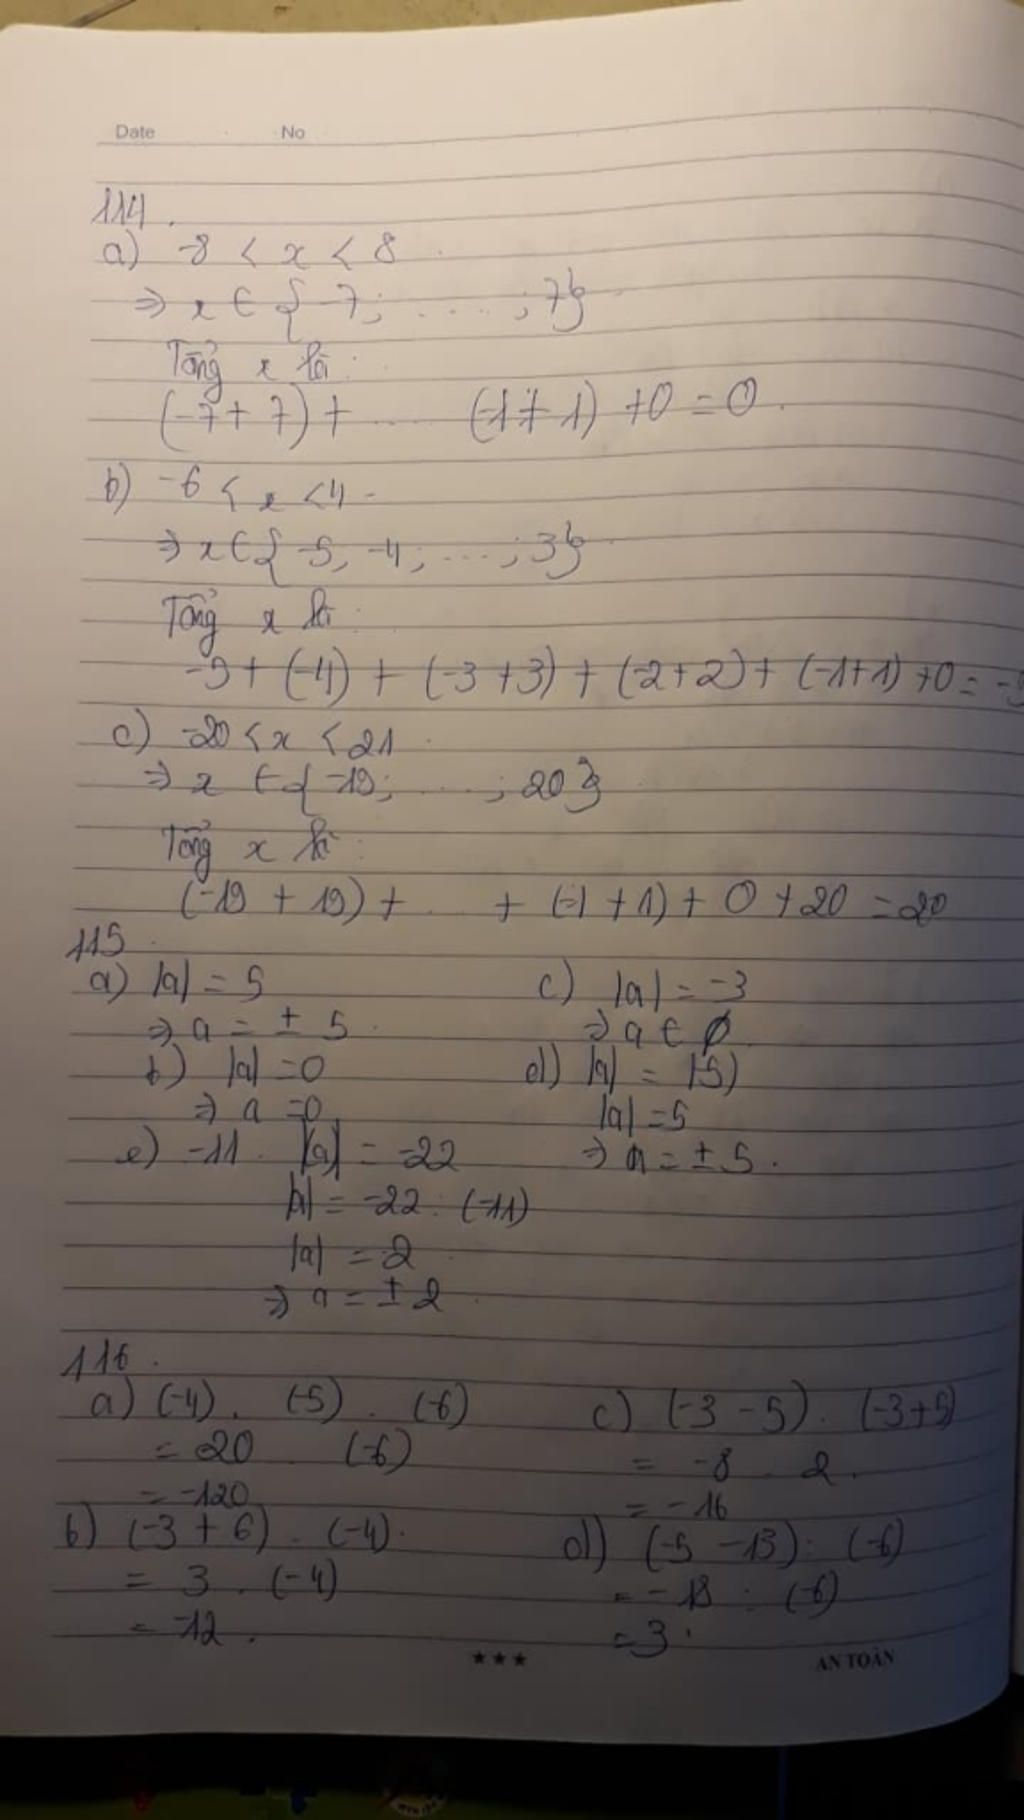 Date No
114.
a) -8 < x < 8
⇒ x ∈ {-7; ....; 7}
Tổng x là:
(-7 + 7) + .... (-1 + 1) + 0 = 0.
b) -6 < x < 4
⇒ x ∈ {-5; -4; ....; 3}
Tổng x là:
-5 + (-4) + (-3 + 3) + (-2 + 2) + (-1 + 1) + 0 = -9
c) -20 < x < 21
⇒ x ∈ {-19; ....; 20}
Tổng x là:
(-19 + 19) + ... + (-1 + 1) + 0 + 20 = 20
115.
a) |a| = 5
⇒ a = ± 5.
b) |a| = 0
⇒ a = 0
c) |a| = -3
⇒ a ∈ ∅
d) |a| = |-5|
|a| = 5
⇒ a = ± 5.
e) -11 . |a| = -22
|a| = -22 : (-11)
|a| = 2
⇒ a = ± 2
116.
a) (-4) . (-5) . (-6)
= 20 . (-6)
= -120
b) (-3 + 6) . (-4).
= 3 . (-4)
= -12.
c) (-3 - 5) . (-3 + 5)
= -8 . 2.
= -16
d) (-5 - 13) : (-6)
= -18 : (-6)
= 3.
*** AN TOÀN